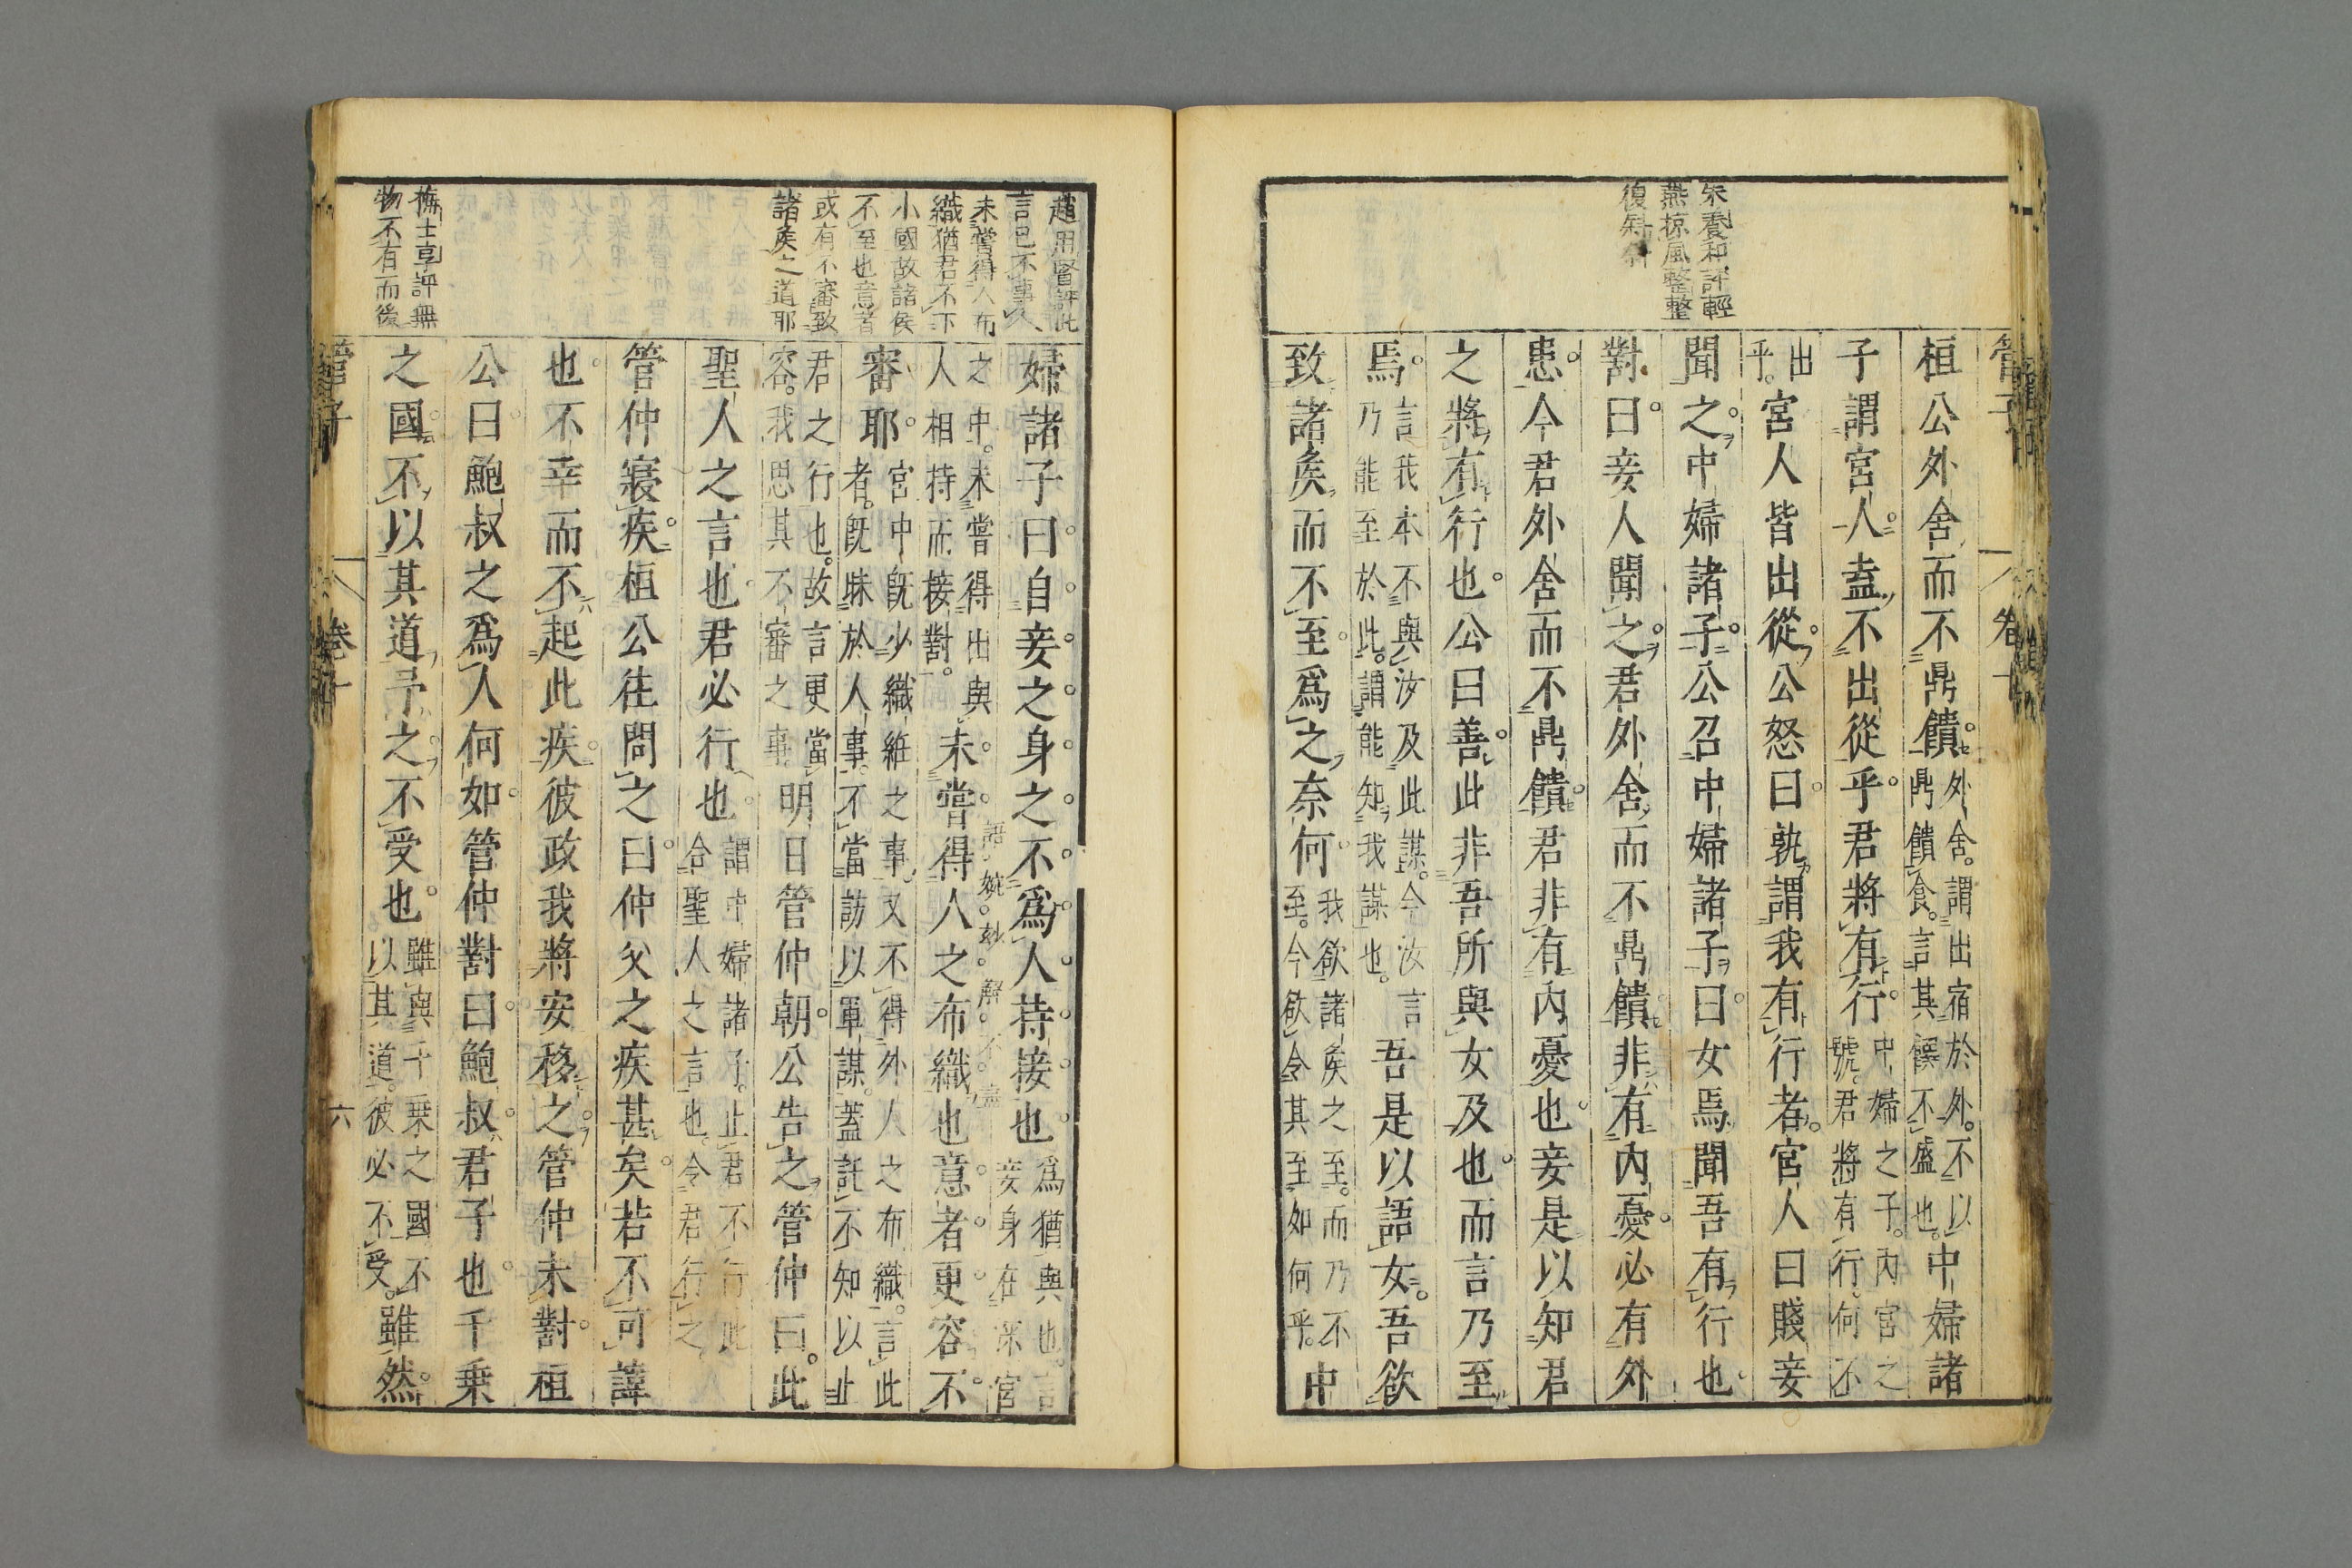 朱養和評輕
燕掠風整整
復斜斜
管子
卷十
桓公外舍而不鼎饋外舍謂出宿於外不以鼎饋食言其饌不盛也中婦諸
子謂宮人盍不出從乎君將有行中婦之子内宮之號君將有行何不
出乎宮人皆出從公怒曰孰謂我有行者宮人曰賤妾
聞之中婦諸子公召中婦諸子曰女焉聞吾有行也
對曰妾人聞之君外舍而不鼎饋非有内憂必有外
患今君外舍而不鼎饋君非有内憂也妾是以知君
之將有行也公曰善此非吾所與女及也而言乃至
焉言我本不與汝及此謀今汝言乃能至於此謂能知我謀也吾是以語女吾欲
致諸矦而不至爲之奈何我欲諸矦之至而乃不至今欲令其至如何乎中
趙用賢評此
言已不事人
未嘗得人布
織猶君不下
小國故諸侯
不至也意者
或有不審致
諸矦之道耶
梅士享評無
物不有而後
婦諸子曰自妾之身之不爲人持接也爲猶與也言妾身在深宮
之中未嘗得出與人相持而接對未嘗得人之布織也意者更容不
語婉妙解不盡
審耶宮中既少織維之事又不得外人之布織言此者既昧於人事不當訪以軍謀蓋託不知以止
君之行也故言更當容我思其不審之事明日管仲朝公告之管仲曰此
聖人之言也君必行也謂中婦諸子止君不行此合聖人之言也令君行之
管仲寢疾桓公往問之曰仲父之疾甚矣若不可諱
也不幸而不起此疾彼政我將安移之管仲未對桓
公曰鮑叔之爲人何如管仲對曰鮑叔君子也千乗
之國不以其道予之不受也雖與千乗之國不以其道彼必不受雖然
管子
卷十
六